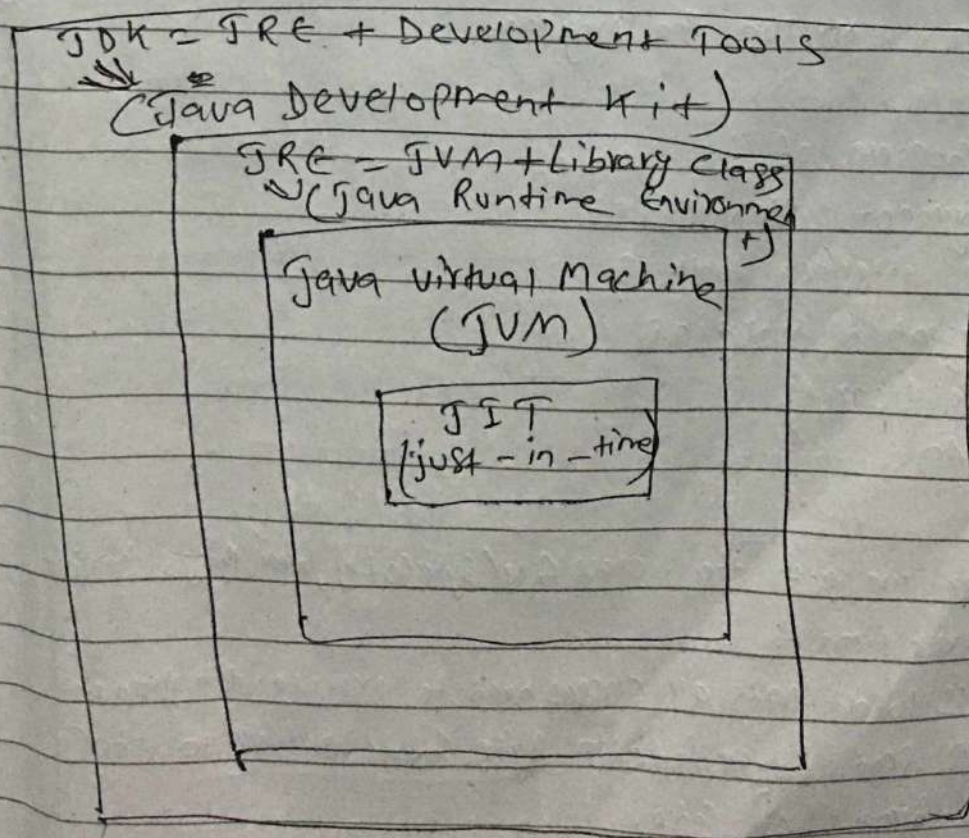 JDK = JRE + Development Tools
(Java Development Kit)
JRE = JVM + Library Class
(Java Runtime Environmen
t)
Java Virtual Machine
(JVM)
JIT
(just-in-time)